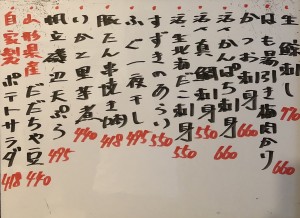 生 鯨刺し 770
はも湯引き梅肉かり 660
かつお刺身 660
活〆かんぱち刺身 660
活〆真鯛刺身 550
活〆生北海だこ刺身 550
すずきのあらい 550
ふぐ一夜干し 495
豚たん串焼き(3本) 418
いかと里芋煮 440
帆立磯辺天ぷら 495
山形県産だだちゃ豆 440
自家製ポテトサラダ 418